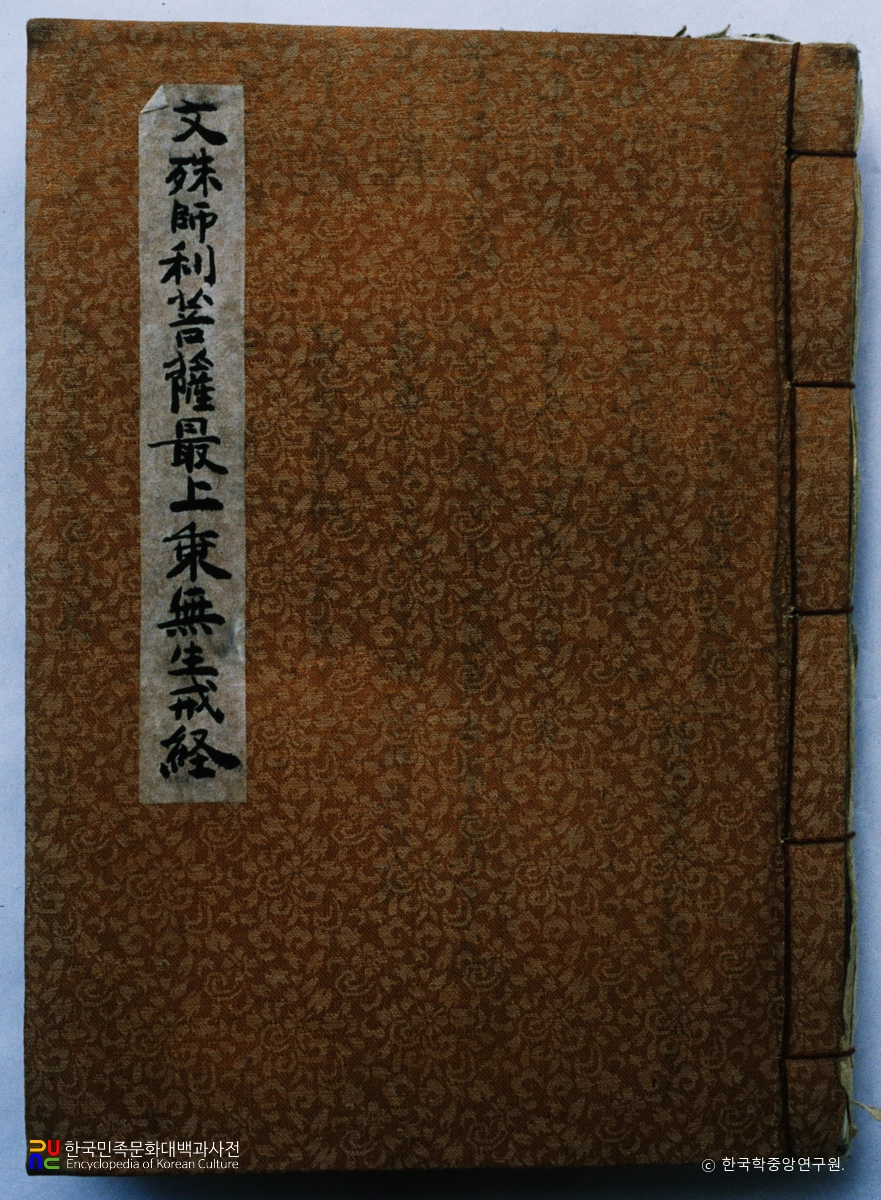 文殊師利菩薩最上乗無生戒経
한국민족문화대백과사전
Encyclopedia of Korean Culture
ⓒ 한국학중앙연구원.